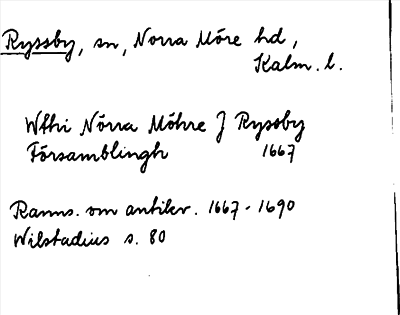 Ryssby, sn, Norra Möre hd,
Kalm. l.
Wthi Nörra Möhre J Ryssby
Församblingh 1667
Ranns. om antikv. 1667-1690
Wilstadius s. 80